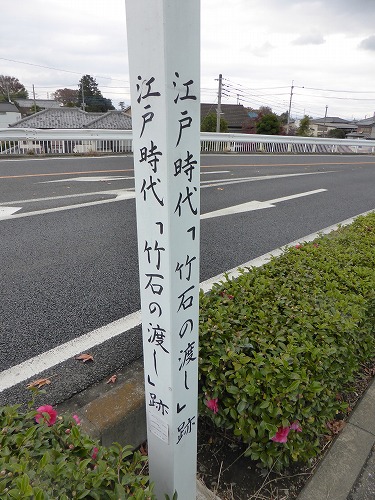 江戸時代「竹石の渡し」跡
江戸時代「竹石の渡し」跡